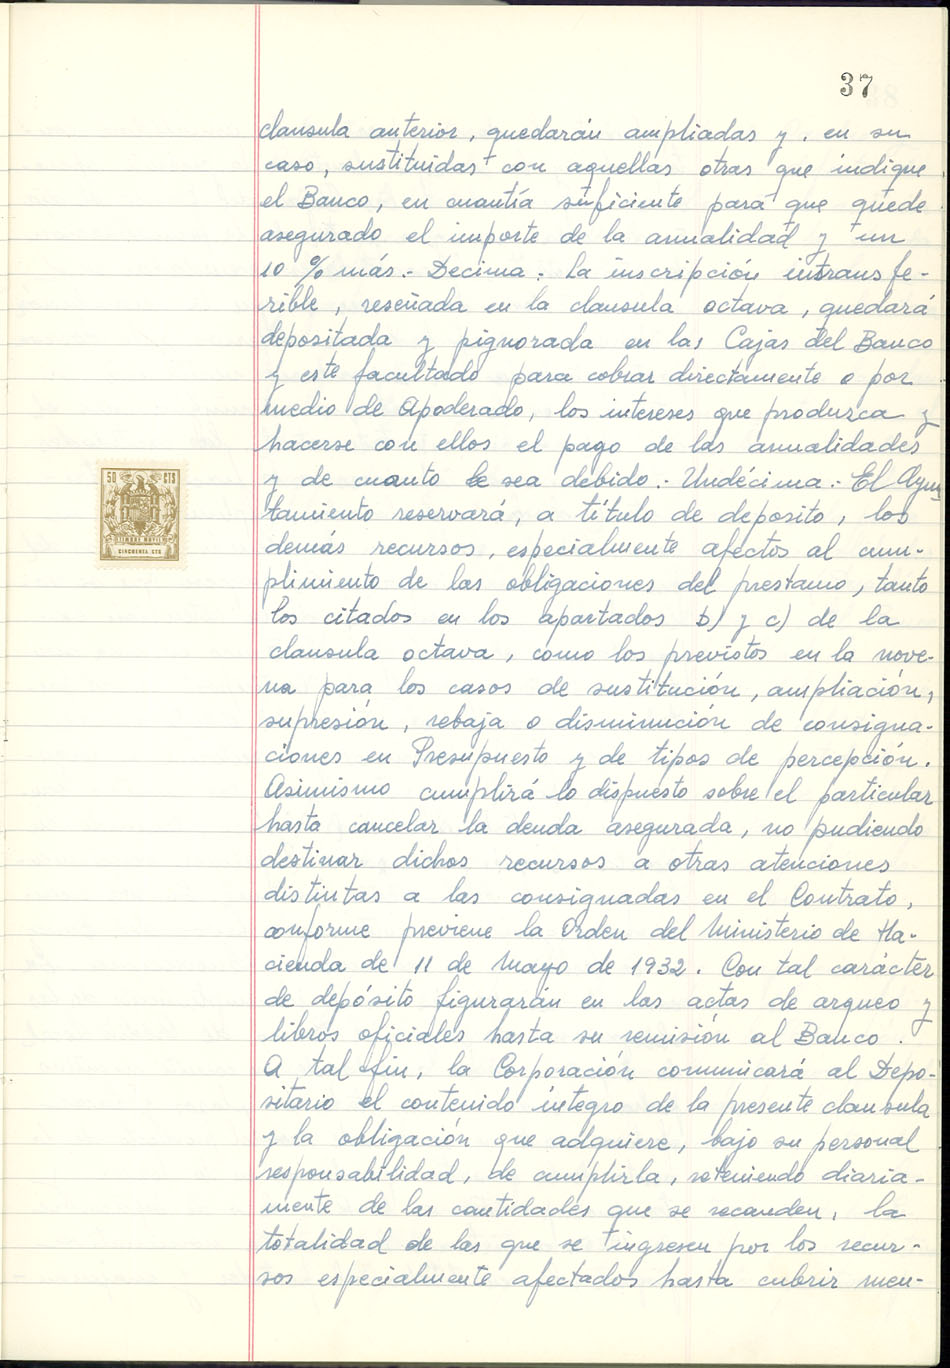 37
clausula anterior, quedarán ampliadas y, en su
caso, sustituidas con aquellas otras que indique
el Banco, en cuantía suficiente para que quede
asegurado el importe de la anualidad y un
10 % más.- Decima.- La inscripción intransfe-
rible, reseñada en la clausula octava, quedará
depositada y pignorada en las Cajas del Banco
y este facultado para cobrar directamente o por
medio de Apoderado, los intereses que produzca y
hacerse con ellos el pago de las anualidades
y de cuanto le sea debido.- Undécima.- El Ayun
tamiento reservará, a título de deposito, los
demás recursos, especialmente afectos al cum-
plimiento de las obligaciones del prestamo, tanto
los citados en los apartados b) y c) de la
clausula octava, como los previstos en la nove-
na para los casos de sustitución, ampliación,
supresión, rebaja o disminución de consigna-
ciones en Presupuesto y de tipos de percepción.
Asimismo cumplirá lo dispuesto sobre el particular
hasta cancelar la deuda asegurada, no pudiendo
destinar dichos recursos a otras atenciones
distintas a las consignadas en el Contrato,
conforme previene la Orden del Ministerio de Ha-
cienda de 11 de Mayo de 1932. Con tal carácter
de depósito figurarán en las actas de arqueo y
libros oficiales hasta su remisión al Banco.
A tal fin, la Corporación comunicará al Depo-
sitario el contenido íntegro de la presente clausula
y la obligación que adquiere, bajo su personal
responsabilidad, de cumplirla, reteniendo diaria-
mente de las cantidades que se recauden, la
totalidad de las que se ingresen por los recur-
sos especialmente afectados hasta cubrir men-
50 CTS
TIMBRE MOVIL
CINCUENTA CTS